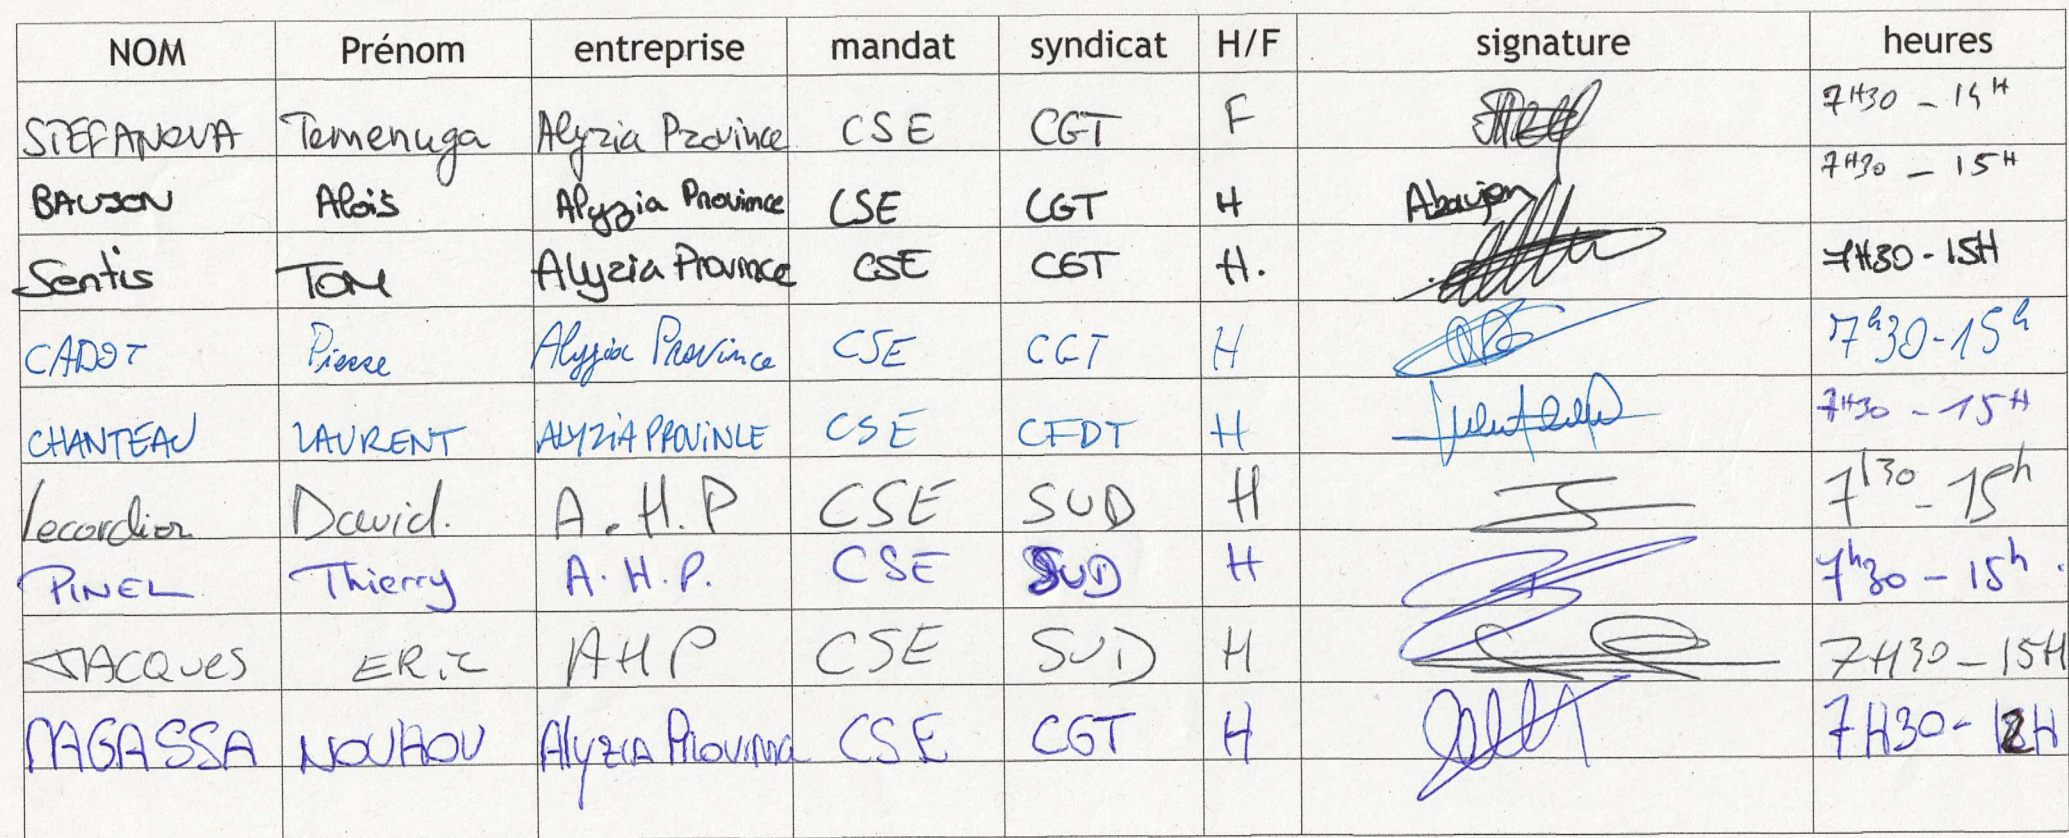 NOM Prénom entreprise mandat syndicat H/F signature heures
STEFANOVA Temenuga Alyzia Province CSE CGT F 7H30 - 15H
BAUJON Aloïs Alyzia Province CSE CGT H Abaujon 7H30 - 15H
Sentis TOM Alyzia Province CSE CGT H. 7H30 - 15H
CADOT Pierre Alyzia Province CSE CGT H 7h30 - 15h
CHANTEAU LAURENT ALYZIA PROVINCE CSE CFDT H 7H30 - 15H
Lecordier David. A.H.P CSE SUD H 7h30 - 15h
PINEL Thierry A.H.P. CSE SUD H 7h30 - 15h.
JACQUES ERIC AHP CSE SUD H 7H30 - 15H
MAGASSA NOUHOU Alyzia Province CSE CGT H 7H30 - 12H